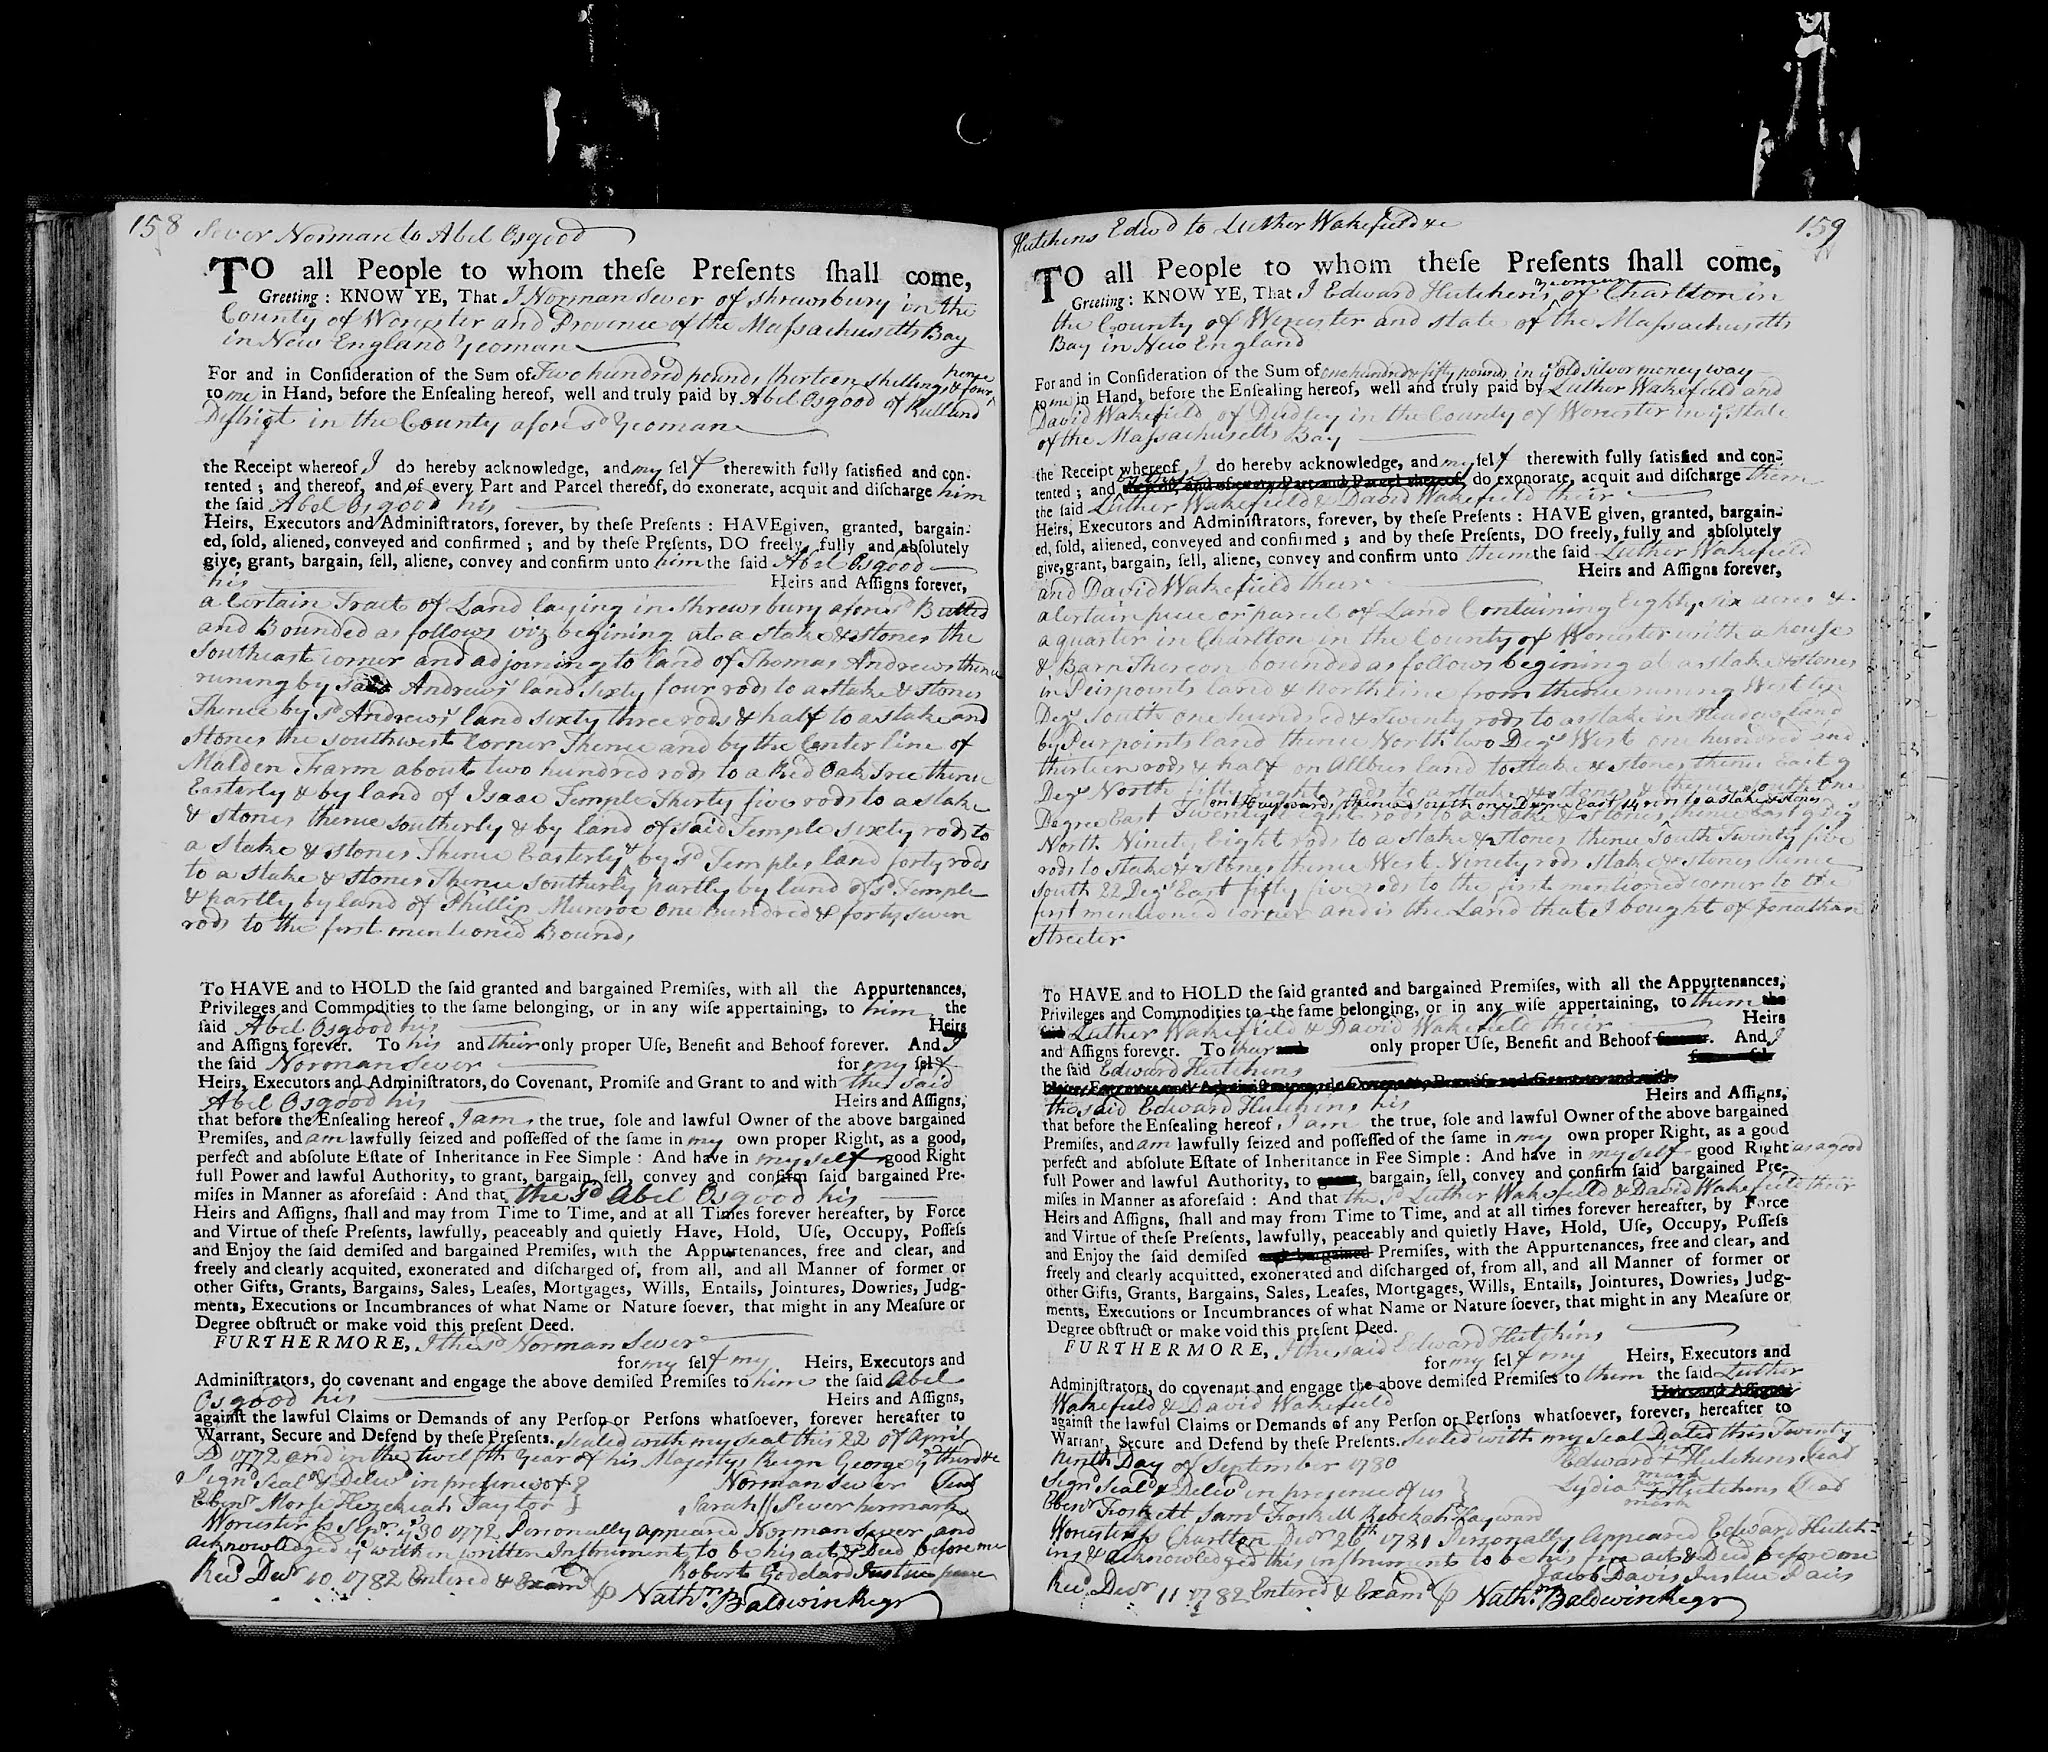 158 Sever Norman to Abel Osgood
TO all People to whom theſe Preſents ſhall come,
Greeting: KNOW YE, That I Norman Sever of Shrewsbury in the
County of Worcester and Province of the Maſsachusetts Bay
in New England Yeoman
For and in Conſideration of the Sum of Two hundred pounds thirteen shillings & four
pence
to me in Hand, before the Enſealing hereof, well and truly paid by Abel Osgood of Rutland
District in the County afores.d Yeoman
the Receipt whereof I do hereby acknowledge, and my ſelf therewith fully ſatisfied and con-
tented; and thereof, and of every Part and Parcel thereof, do exonerate, acquit and diſcharge him
the ſaid Abel Osgood his
Heirs, Executors and Adminiſtrators, forever, by theſe Preſents: HAVE given, granted, bargain-
ed, ſold, aliened, conveyed and confirmed; and by theſe Preſents, DO freely, fully and abſolutely
give, grant, bargain, ſell, aliene, convey and confirm unto him the ſaid Abel Osgood
his Heirs and Aſſigns forever,
a Certain Tract of Land laying in Shrewsbury afores.d Butted
and Bounded as follows viz begining at a stake & stones the
Southeast corner and adjoining to land of Thomas Andrews thence
runing by said Andrews land sixty four rods to a stake & stones
Thence by s.d Andrews land sixty three rods & half to a stake and
Stones the southwest Corner Thence and by the Center line of
Malden Farm about two hundred rods to a Red Oak Tree thence
Easterly & by land of Isaac Temple Thirty five rods to a stake
& stones thence Southerly & by land of said Temple sixty rods to
a stake & stones Thence Easterly & by s.d Temples land forty rods
to a stake & stones Thence Southerly partly by land of s.d Temple
& partly by land of Phillip Munroe one hundred & forty seven
rods to the first mentioned Bounds
To HAVE and to HOLD the ſaid granted and bargained Premiſes, with all the Appurtenances,
Privileges and Commodities to the ſame belonging, or in any wiſe appertaining, to him the
ſaid Abel Osgood his Heirs
and Aſſigns forever. To his and their only proper Uſe, Benefit and Behoof forever. And I
the ſaid Norman Sever for my ſelf
Heirs, Executors and Adminiſtrators, do Covenant, Promiſe and Grant to and with the said
Abel Osgood his Heirs and Aſſigns,
that before the Enſealing hereof I am the true, ſole and lawful Owner of the above bargained
Premiſes, and am lawfully ſeized and poſſeſſed of the ſame in my own proper Right, as a good,
perfect and abſolute Eſtate of Inheritance in Fee Simple: And have in my self good Right
full Power and lawful Authority, to grant, bargain, ſell, convey and confirm ſaid bargained Pre-
miſes in Manner as aforeſaid: And that the s.d Abel Osgood his
Heirs and Aſſigns, ſhall and may from Time to Time, and at all Times forever hereafter, by Force
and Virtue of theſe Preſents, lawfully, peaceably and quietly Have, Hold, Uſe, Occupy, Poſſeſs
and Enjoy the ſaid demiſed and bargained Premiſes, with the Appurtenances, free and clear, and
freely and clearly acquited, exonerated and diſcharged of, from all, and all Manner of former or
other Gifts, Grants, Bargains, Sales, Leaſes, Mortgages, Wills, Entails, Jointures, Dowries, Judg-
ments, Executions or Incumbrances of what Name or Nature ſoever, that might in any Meaſure or
Degree obſtruct or make void this preſent Deed.
FURTHERMORE, I the s.d Norman Sever
for my ſelf my Heirs, Executors and
Adminiſtrators, do covenant and engage the above demiſed Premiſes to him the ſaid Abel
Osgood his Heirs and Aſſigns,
againſt the lawful Claims or Demands of any Perſon or Perſons whatſoever, forever hereafter to
Warrant, Secure and Defend by theſe Preſents. Sealed with my seal this 22 of April
AD 1772 and in the twelfth Year of his Majestys Reign George y.e third &c
Sign.d Seal.d & Deliv.d in presence of } Norman Sever Seal
Eben.r Morse Hezekiah Taylor } Sarah || Sever her mark
Worcester ſs Sep.r y.e 30 1772 Personally appeared Norman Sever and
acknowledged y.e within written Instrument to be his act & Deed before me
Robert Goddard Justice peace
Rec.d Dec.r 10 1782 Entered & Exam.d ⅌ Nath.n Baldwin Reg.r
Hutchens Edw.d to Luther Wakefield &c 159
TO all People to whom theſe Preſents ſhall come,
Greeting: KNOW YE, That I Edward Hutchens yeoman of Charlton in
the County of Worcester and State of the Maſsachusetts
Bay in New England
For and in Conſideration of the Sum of one hundred & fifty pounds in y.e old silver money way
to me in Hand, before the Enſealing hereof, well and truly paid by Luther Wakefield and
David Wakefield of Dudley in the County of Worcester in y.e State
of the Maſsachusetts Bay
the Receipt whereof I do hereby acknowledge, and my ſelf therewith fully ſatisfied and con-
tented; and thereof, and of every Part and Parcel thereof, do exonorate, acquit and diſcharge them
the ſaid Luther Wakefield & David Wakefield their
Heirs, Executors and Adminiſtrators, forever, by theſe Preſents: HAVE given, granted, bargain-
ed, ſold, aliened, conveyed and confirmed; and by theſe Preſents, DO freely, fully and abſolutely
give, grant, bargain, ſell, aliene, convey and confirm unto them the ſaid Luther Wakefield
Heirs and Aſſigns forever,
and David Wakefield their
a Certain piece or parcel of Land Containing Eighty six acres &
a quarter in Charlton in the County of Worcester with a house
& Barn Thereon bounded as follows begining at a stake & stones
in Peirpoints land & North line from thence runing West
Deg.s South one hundred & Twenty rods to a stake in Meadow land
by Peirpoints land thence North two Deg.s West one hundred and
thirteen rods & half on land to stake & stones thence East 9
Deg.s North fifty Eight rods to a stake & stones & thence South One
Degree East Twenty Eight rods to a Stake & stones thence East 9 Deg.s
North Ninety Eight rods to a stake & stones thence South Twenty five
rods to stake & stones thence West Ninety rods stake & stones thence
South 22 Deg.s East fifty five rods to the first mentioned corner to the
first mentioned corner and is the Land that I bought of Jonathan
Streeter
To HAVE and to HOLD the ſaid granted and bargained Premiſes, with all the Appurtenances,
Privileges and Commodities to the ſame belonging, or in any wiſe appertaining, to them the
ſaid Luther Wakefield & David Wakefield their Heirs
and Aſſigns forever. To their and only proper Uſe, Benefit and Behoof forever. And I
the ſaid Edward Hutchins
Heirs, Executors and Adminiſtrators, do Covenant, Promiſe and Grant to and with
the said Edward Hutchins his Heirs and Aſſigns,
that before the Enſealing hereof I am the true, ſole and lawful Owner of the above bargained
Premiſes, and am lawfully ſeized and poſſeſſed of the ſame in my own proper Right, as a good
perfect and abſolute Eſtate of Inheritance in Fee Simple: And have in my self good Right as a good
full Power and lawful Authority, to grant, bargain, ſell, convey and confirm ſaid bargained Pre-
miſes in Manner as aforeſaid: And that the s.d Luther Wakefield & David Wakefield their
Heirs and Aſſigns, ſhall and may from Time to Time, and at all times forever hereafter, by Force
and Virtue of theſe Preſents, lawfully, peaceably and quietly Have, Hold, Uſe, Occupy, Poſſeſs
and Enjoy the ſaid demiſed and bargained Premiſes, with the Appurtenances, free and clear, and
freely and clearly acquitted, exonerated and diſcharged of, from all, and all Manner of former or
other Gifts, Grants, Bargains, Sales, Leaſes, Mortgages, Wills, Entails, Jointures, Dowries, Judg-
ments, Executions or Incumbrances of what Name or Nature ſoever, that might in any Meaſure or
Degree obſtruct or make void this preſent Deed.
FURTHERMORE, I the said Edward Hutchins
for my ſelf my Heirs, Executors and
Adminiſtrators, do covenant and engage the above demiſed Premiſes to them the ſaid Luther
Wakefield & David Wakefield Heirs and Aſſigns
againſt the lawful Claims or Demands of any Perſon or Perſons whatſoever, forever, hereafter to
Warrant, Secure and Defend by theſe Preſents. Sealed with my Seal Dated this Twenty
Ninth Day of September 1780 Edward + Hutchins Seal
mark
Sign.d Seal.d & Deliv.d in presence of us } Lydia her + Hutchins Seal
mark
Eben.r Foskett Sam.l Foskett Rebekah Hayward
Worcester ſs Charlton Dec.r 26th 1781 Personally Appeared Edward Hutch-
ins & acknowledged this instrument to be his free act & Deed before me
Jacob Davis Justice Pacis
Rec.d Dec.r 11 1782 Entered & Exam.d ⅌ Nath.n Baldwin Reg.r